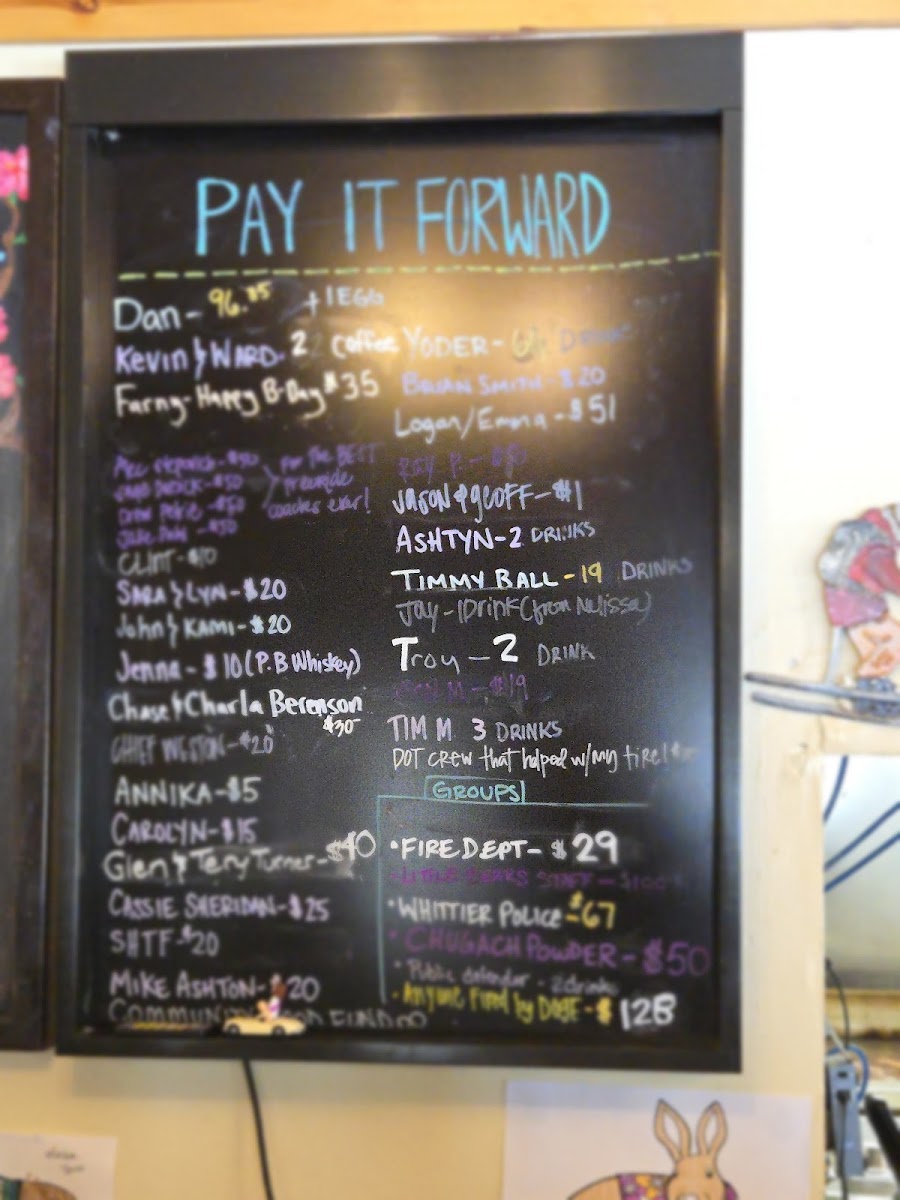 PAY IT FORWARD
Dan - 96.85 + 1 EGG
Kevin & WARD - 2 Coffee
Farng - Happy B-Day $35
for the BEST
coaches ever!
CLINT - $10
SARA & LYN - $20
John & KAMI - $20
Jenna - $10 (P.B Whiskey)
Chase & Charla Berenson
$30
CHIEF WESTON - $20
ANNIKA - $5
CAROLYN - $15
Glen & Tery Turner - $40
CASSIE SHERIDAN - $25
SHTF - $20
MIKE ASHTON - $20
COMMUNITY FUND
YODER -
BRIAN SMITH - $20
Logan/Emma - $51
JASON & GEOFF - $1
ASHTYN - 2 DRINKS
TIMMY BALL - 19 DRINKS
Jay - 1 Drink (from Melissa)
Troy - 2 DRINK
- $19
TIM M 3 DRINKS
DOT CREW that helped w/my tire!
GROUPS
• FIRE DEPT - $29
LITTLE BEARS STAFF - $100
• WHITTIER POLICE - $67
• CHUGACH POWDER - $50
• Public defender - 2 drinks
• Anyone Fired by DOGE - $128